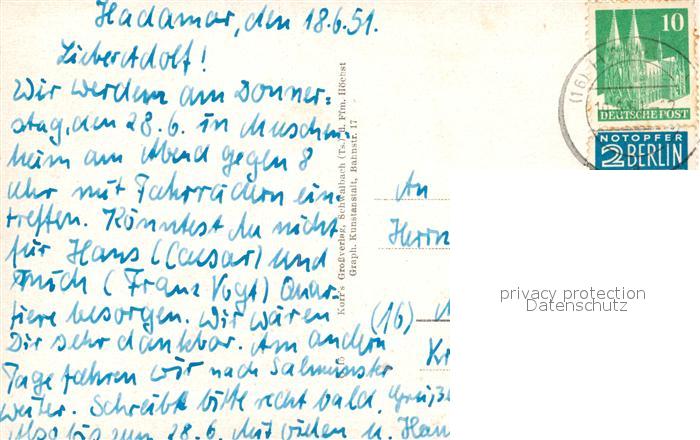 Hadamar, den 18.6.51.
Lieber Adolf!
Wir werden am Donners-
stag, den 28.6. in Muschen-
heim am Abend gegen 8
Uhr mit Fahrrädern ein-
treffen. Könntest du nicht
für Hans (Caesar) und
mich (Franz Vogt) Quar-
tiere besorgen. Wir wären
Dir sehr dankbar. Am andern
Tage fahren wir nach Salmünster
weiter. Schreibe bitte recht bald.
Also bis zum 28.6. Mit vielen
Korr's Großverlag, Schwalbach (Ts.) u. Ffm. Höchst
Graph. Kunstanstalt, Bahnstr. 17
10
DEUTSCHE POST
NOTOPFER
2 BERLIN
(16)
An
Herrn
(16)
Kr
privacy protection
Datenschutz